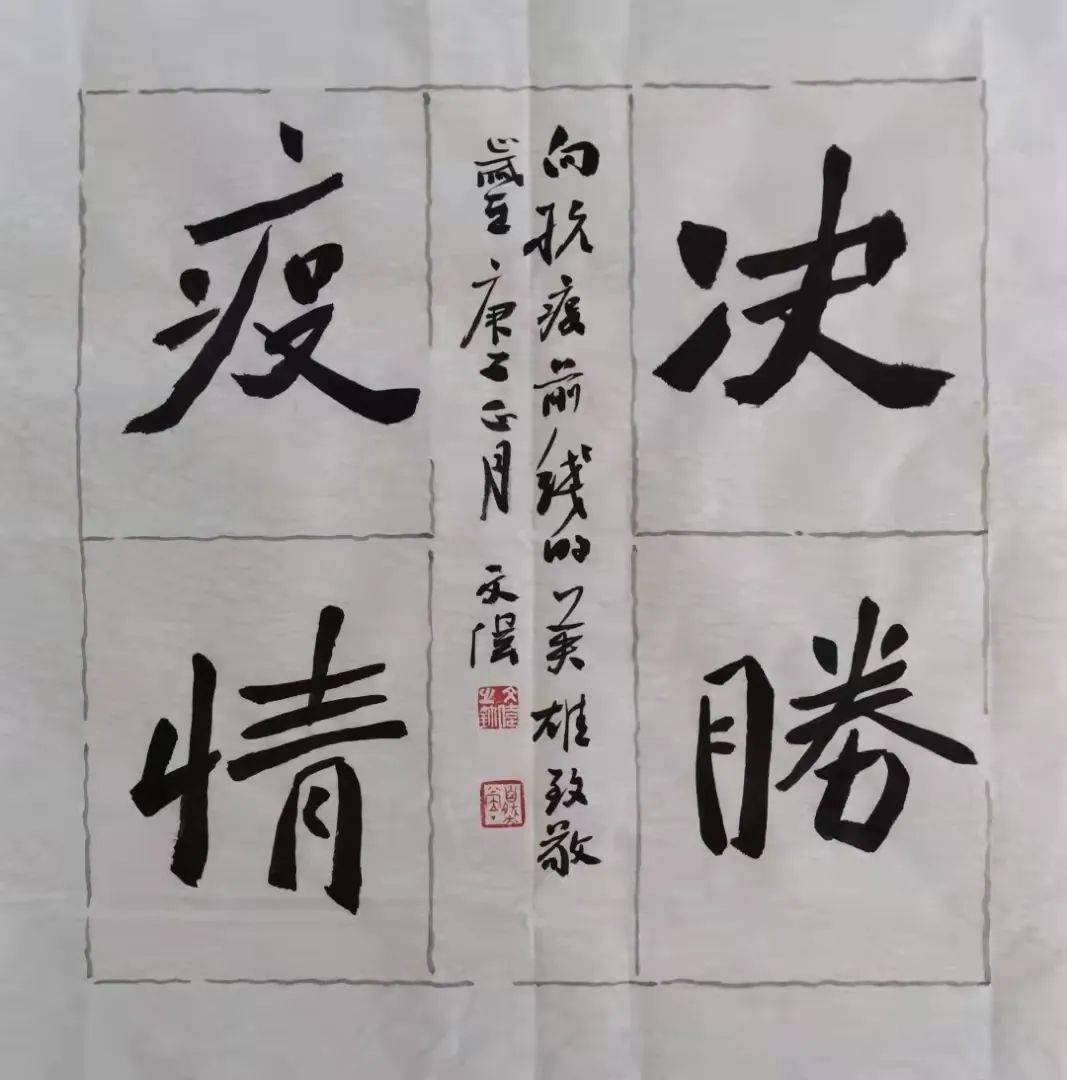 决勝
疫情
向抗疫前线的英雄致敬
歲在庚子正月 文偉